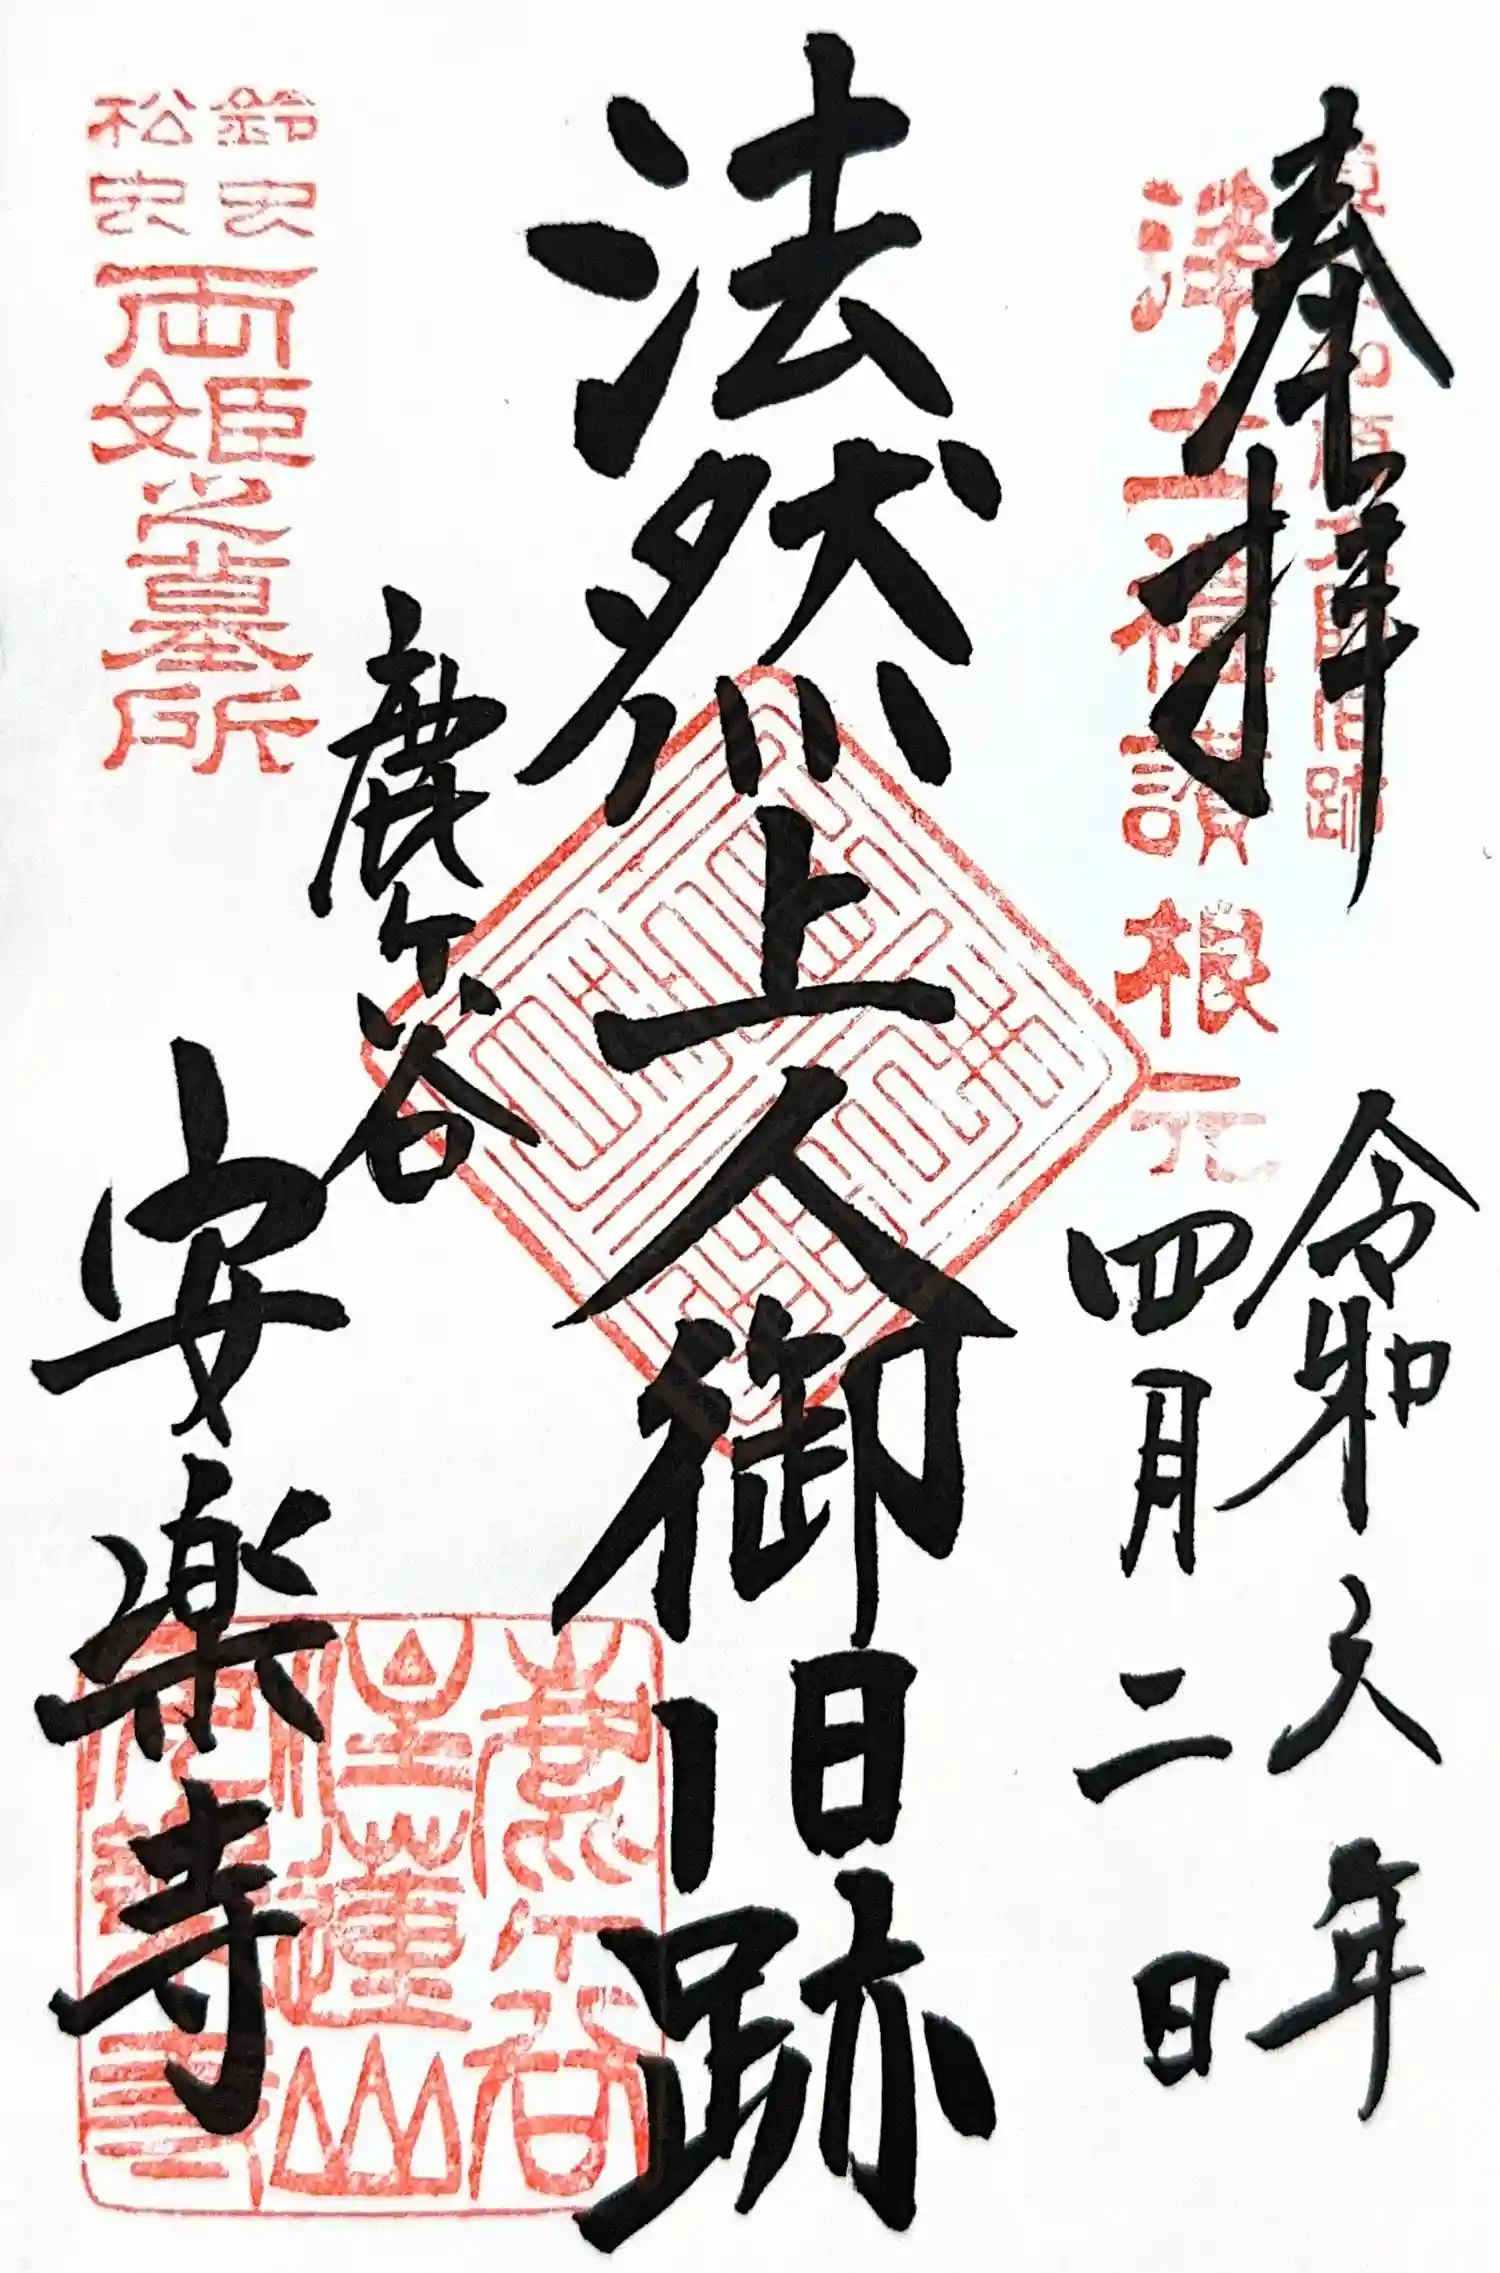 奉拝
浄土禮讃根元
令和六年
四月二日
法然上人御旧跡
鹿ヶ谷
安楽寺
鈴虫
松虫
両姫之墓所
鹿ヶ谷
住蓮山
安楽寺